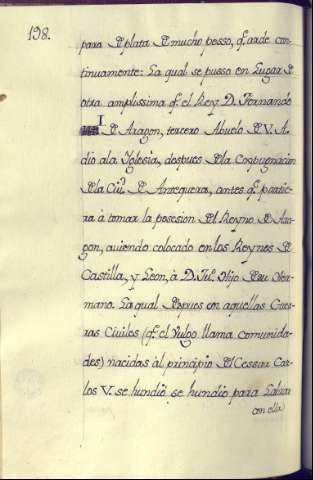 198.
para de plata de mucho pesso, q.e arde con-
tinuamente: La qual se pusso en Lugar de
otra amplissima q.e el Rey D. Fernando
I de Aragon, tercero Abuelo de V. A.
dio ala Iglesia, despues dela Conpugnacion
dela Ciu.d de Antequera, antes q.e partie-
ra à tomar la posesion del Reyno de Ara-
gon, auiendo colocado en los Reynos de
Castilla, y Leon, à D. Ju.o Hijo de su Her-
mano. La qual despues en aquellas Guer-
ras Civiles (q.e el Vulgo llama comunida-
des) nacidas àl principio del Cessar Car-
los V. se hundiò se hundio para Labrar
con ella